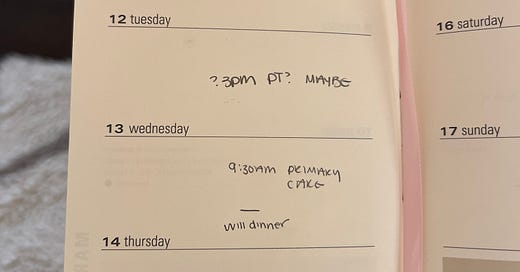 12 tuesday
16 saturday
? 3PM PT? MAYBE
13 wednesday
17 sunday
9:30AM PRIMARY
CARE
will dinner
14 thursday